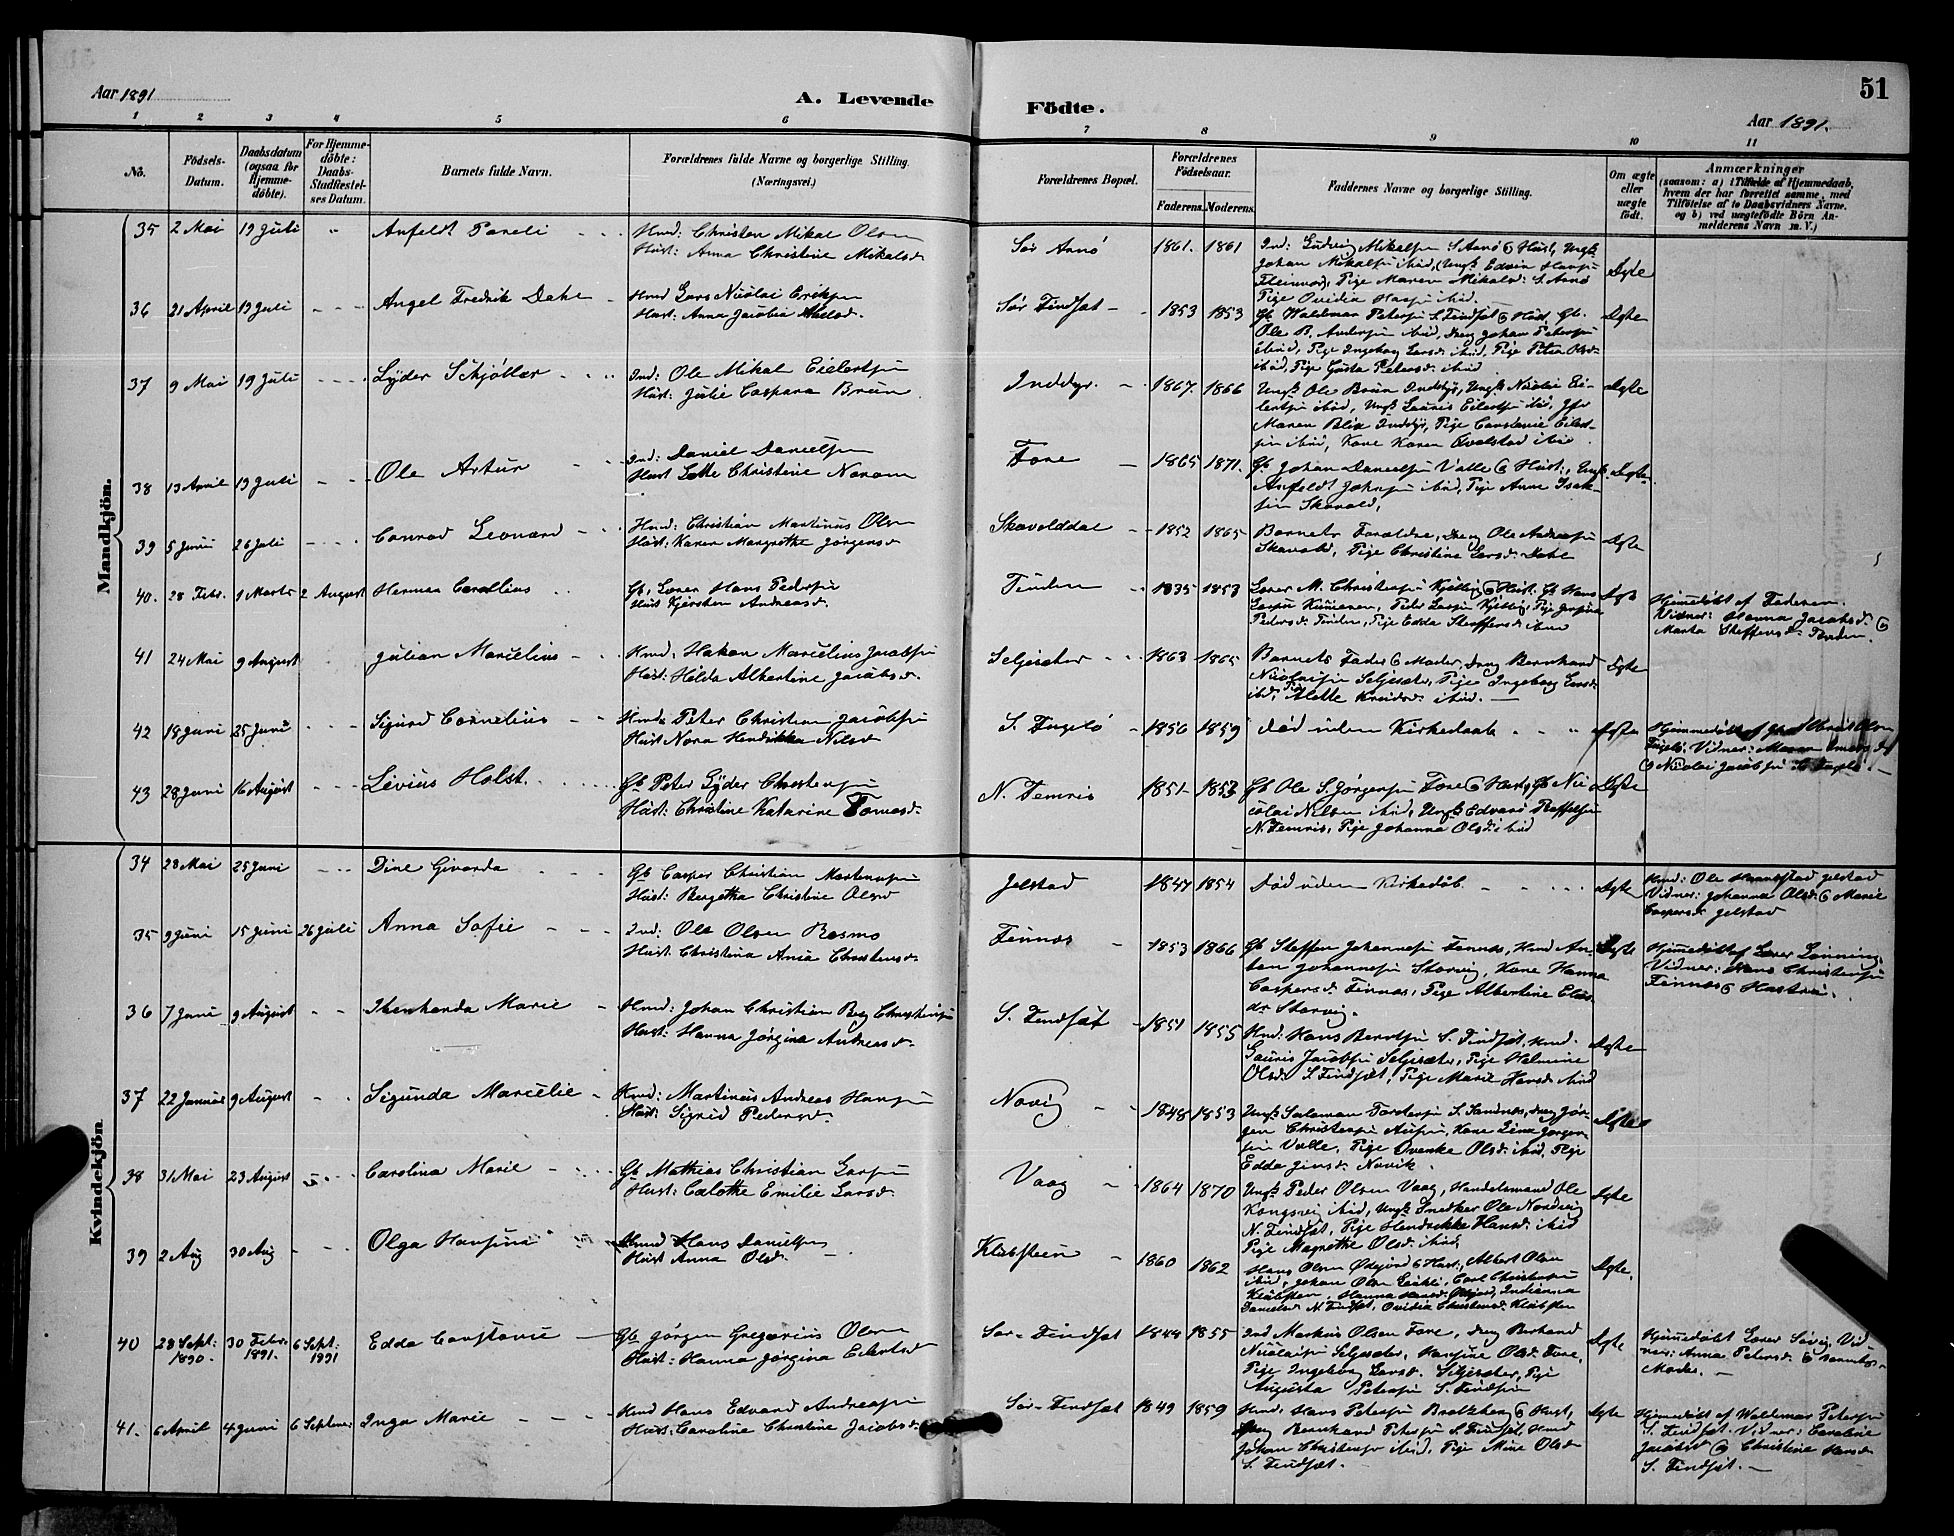 Aar 1891
A. Levende
Födte.
Aar 1891.
51
1 2 3 4 5 6 7 8 9 10 11
No.
Födsels-
Datum.
Daabsdatum
(ogsaa for
Hjemme-
döbte).
For Hjemme-
döbte:
Daabs-
Stadfæstel-
ses Datum.
Barnets fulde Navn.
Forældrenes fulde Navne og borgerlige Stilling.
(Næringsvei.)
Forældrenes Bopæl.
Forældrenes
Födselsaar.
Faderens. Moderens.
Faddernes Navne og borgerlige Stilling.
Om ægte
eller
uægte
födt.
Anmærkninger
(saasom: a) i Tilfælde af Hjemmedaab,
hvem der har forrettet samme, med
Tilföielse af to Daabsvidners Navne.
og b) ved uægtefödte Börn An-
melderens Navn m. V.)
Mandkjön.
35 2 Mai 19 Juli " Anfelt Pareli
Kmd: Christen Mikal Olsen
Hust: Anna Christine Mikalsd.
Sör Arnö 1861. 1861
Ind: Ludvig Mikalsen S. Arnö & Hust, Ungk
Johan Mikalsen ibid, Ungk Edvin Hansen
Pige Maren Mikalsd. S. Arnö
Pige Ovidia ibid.
Ægte
36 21 April 19 Juli Angel Fredrik Dahl
Kmd Lars Nicolai Eriksen
Hust: Anna Jacobia
Sör Findset 1853 1853
Gb Waldemar Petersen S. Findset & Hust, Gb.
Ole B. Andersen ibid, Dreng Johan Petersen
ibid, Pige Ingeborg Larsd. ibid, Pige Petra Olsd.
ibid, Pige Petersd. ibid
Ægte
37 9 Mai 19 Juli Lyder Schjöller
Ind: Ole Mikal Eilertsen
Hust: Julie Caspara Bruun
Inddyr. 1867. 1866
Ungk Ole Bruun Inddyr, Ungk Nicolai Ei-
lertsen ibid, Ungk Lauris Eilertsen ibid,
Maren Blix Inddyr, Pige Constanse Eilert-
sen ibid, Kone Karen ibid.
Ægte
38 13 April 19 Juli Ole Artur
Ind: Daniel Danielsen
Hust Lotte Christine
Fore 1865 1871.
Gb Johan Danielsen Valle & Hust:, Ungk
Anfeldt Johnsen ibid, Pige Anne Isak-
sen Skavold,
Ægte
39 5 Juni 26 Juli Conrad Leonard
Kmd: Christian Martinus Olsen
Hust: Karen Margrethe Jörgensd
Skavolddal 1852 1865
Barnets Forældre, Dreng Ole Andreasen
Skavold, Pige Christine Larsd. Dahl
Ægte
40. 28 Febr. 1 Marts 2 August Herman Carolius
Gb, Lærer Hans Pedersen
Hust Kjersten Andreasd.
Finden 1835 1853
Lærer M. Christensen & Hust. Gb Hans
Larsen Peder Larsen Pige
Pedersd. Finden, Pige Edda Steffensd. ibid
Ægte
Hjemmedöbt af Faderen.
Vidner: Hanna Jacobsd. &
Marta Steffensd. Finden.
41 24 Mai 9 August Julian Marcelius
Kmd: Hakon Marcelius Jacobsen
Hust: Hilda Albertine Jacobsd.
Seljeseter 1863 1865
Barnets Fader & Moder, Dreng Bernhard
Nicolaisen Seljeseter, Pige Ingeborg Larsd.
ibid, Pige Mette Knudsd. ibid.
Ægte
42 18 Juni 25 Juni Sigurd Cornelius
Kmd: Peter Christian Jacobsen
Hust Nora Hendrikka Nilsd.
S. Fuglö 1856 1859
Död uden Kirkedaab
Ægte
Hjemmedöbt af Albrit Olsen
Fuglö, Vidner: Maren
& Nicolai Jacobsen S. Fuglö.
43 28 Juni 16 August Levius Holst
Gb Peter Lyder Christensen
Hust: Christine Katarine Tomasd.
N. Femris 1851 1852
Gb Ole S. Jörgensen Fore & Hust, Gb Ni-
colai Nilsen ibid, Ungk Edvard
N. Femris, Pige Johanna Olsd. ibid
Ægte
Kvindekjön
34 28 Mai 25 Juni Dine Givarda
Gb Casper Christian Mortensen
Hust: Bergette Christine Olsd
Jelstad 1847 1854
Död uden Kirkedöb
Ægte
Kmd: Ole Jelstad
Vidner: Johanna Olsd. & Marie
Caspersd. Jelstad
35 9 Juni 15 Juni 26 Juli Anna Sofie
Ind: Ole Olsen Rosmo
Hust: Christina Ania Christensd.
Finnæs 1853 1866
Gb Steffen Johannesen Finnæs, Kmd An-
ton Johannesen Storvig, Kone Hanna
Caspersd. Finnæs, Pige Albertine Elias
dr Storvig.
Ægte
Hjemmedöbt af Lærer Lönning.
Vidner: Hans Christensen
Finnæs & Hustru.
36 7 Juni 9 August Marie
Kmd: Johan Christian Berg Christensen
Hust: Hanna Jörgina Andreasd.
S. Findset 1851 1855
Kmd: Hans Berntsen S. Findset, Kmd.
Lauris Jacobsen Seljeseter, Pige Helmine
Olsd. S. Findset, Pige Marie Hansd. ibid
Ægte
37 22 Januar 9 August Sigunda Marcelie
Kmd: Martinus Andreas Hansen
Hust: Sigrid Pedersd.
Novig 1848 1853
Ungk Salamon Torstensen S. Sandnes, Dreng Jör-
gen Christensen Kone Lina Jörgen-
sen Valle, Pige Olsd. ibid, Pige
Edda Jensd. Novik.
Ægte
38 31 Mai 23 August Carolina Marie
Gb Mathias Christian Larsen
Hust: Calotte Emilie Larsd.
Vaag 1864 1870
Ungk Peder Olsen Vaag, Handelsmand Ole
Kongsvig ibid, Ungk Snedker Ole Nordvig
N. Findset, Pige Hendrikke Hansd. ibid
Pige Magrethe Olsd. ibid,
Ægte
39 2 Aug 30 Aug Olga Hansine
Kmd Hans Danielsen
Hust Anna Olsd.
Klæbsteen 1860 1862
Hans Olsen & Hust:, Albert Olsen
ibid, Johan Olsen Carl Christensen
Klæbsten, Hanna Hansd. Indianna
Danielsd N. Findset, Ovidia Christensd. Klæbsten
Ægte.
40 28 Sept. 1890. 30 Febr. 1891. 6 Sept: 1891 Edda Constanse
Gb Jörgen Gregorius Olsen
Hust: Hanna Jörgina Eilertsd.
Sör-Findset 1844 1855
Ind Markus Olsen Fore, Dreng Bernhard
Nicolaisen Seljeseter, Hansine Olsd. Fore,
Pige Ingeborg Larsd. Seljeseter, Pige
Augusta Petersen S. Findset
Ægte
Hjemmedöbt Lærer Vid-
ner: Anna Petersd. & Barnets
Moder.
41. 6 April 4 Juni 6 September Inga Marie
Kmd Hans Edvard Andreassen
Hust: Caroline Christine Jacobsd.
Sör-Findset 1849 1859
Kmd: Hans Petersen & Hust,
Dreng Bernhard Petersen S. Findset, Kmd
Johan Christensen ibid, Pige Mine Olsd.
S. Findset.
Ægte
Hjemmedöbt af Waldemar Petersen
S. Findset. Vidner: Caroline
Jacobsd & Christine Hansd.
S. Findset.